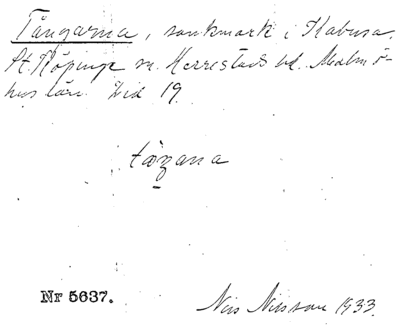 Tångarna, sankmark i Kabusa.
St. Köpinge sn. Herrestads hd. Malmö-
hus län. Lid 19.
tåŋana
Nr 5637.
Nils Nilsson 1933.